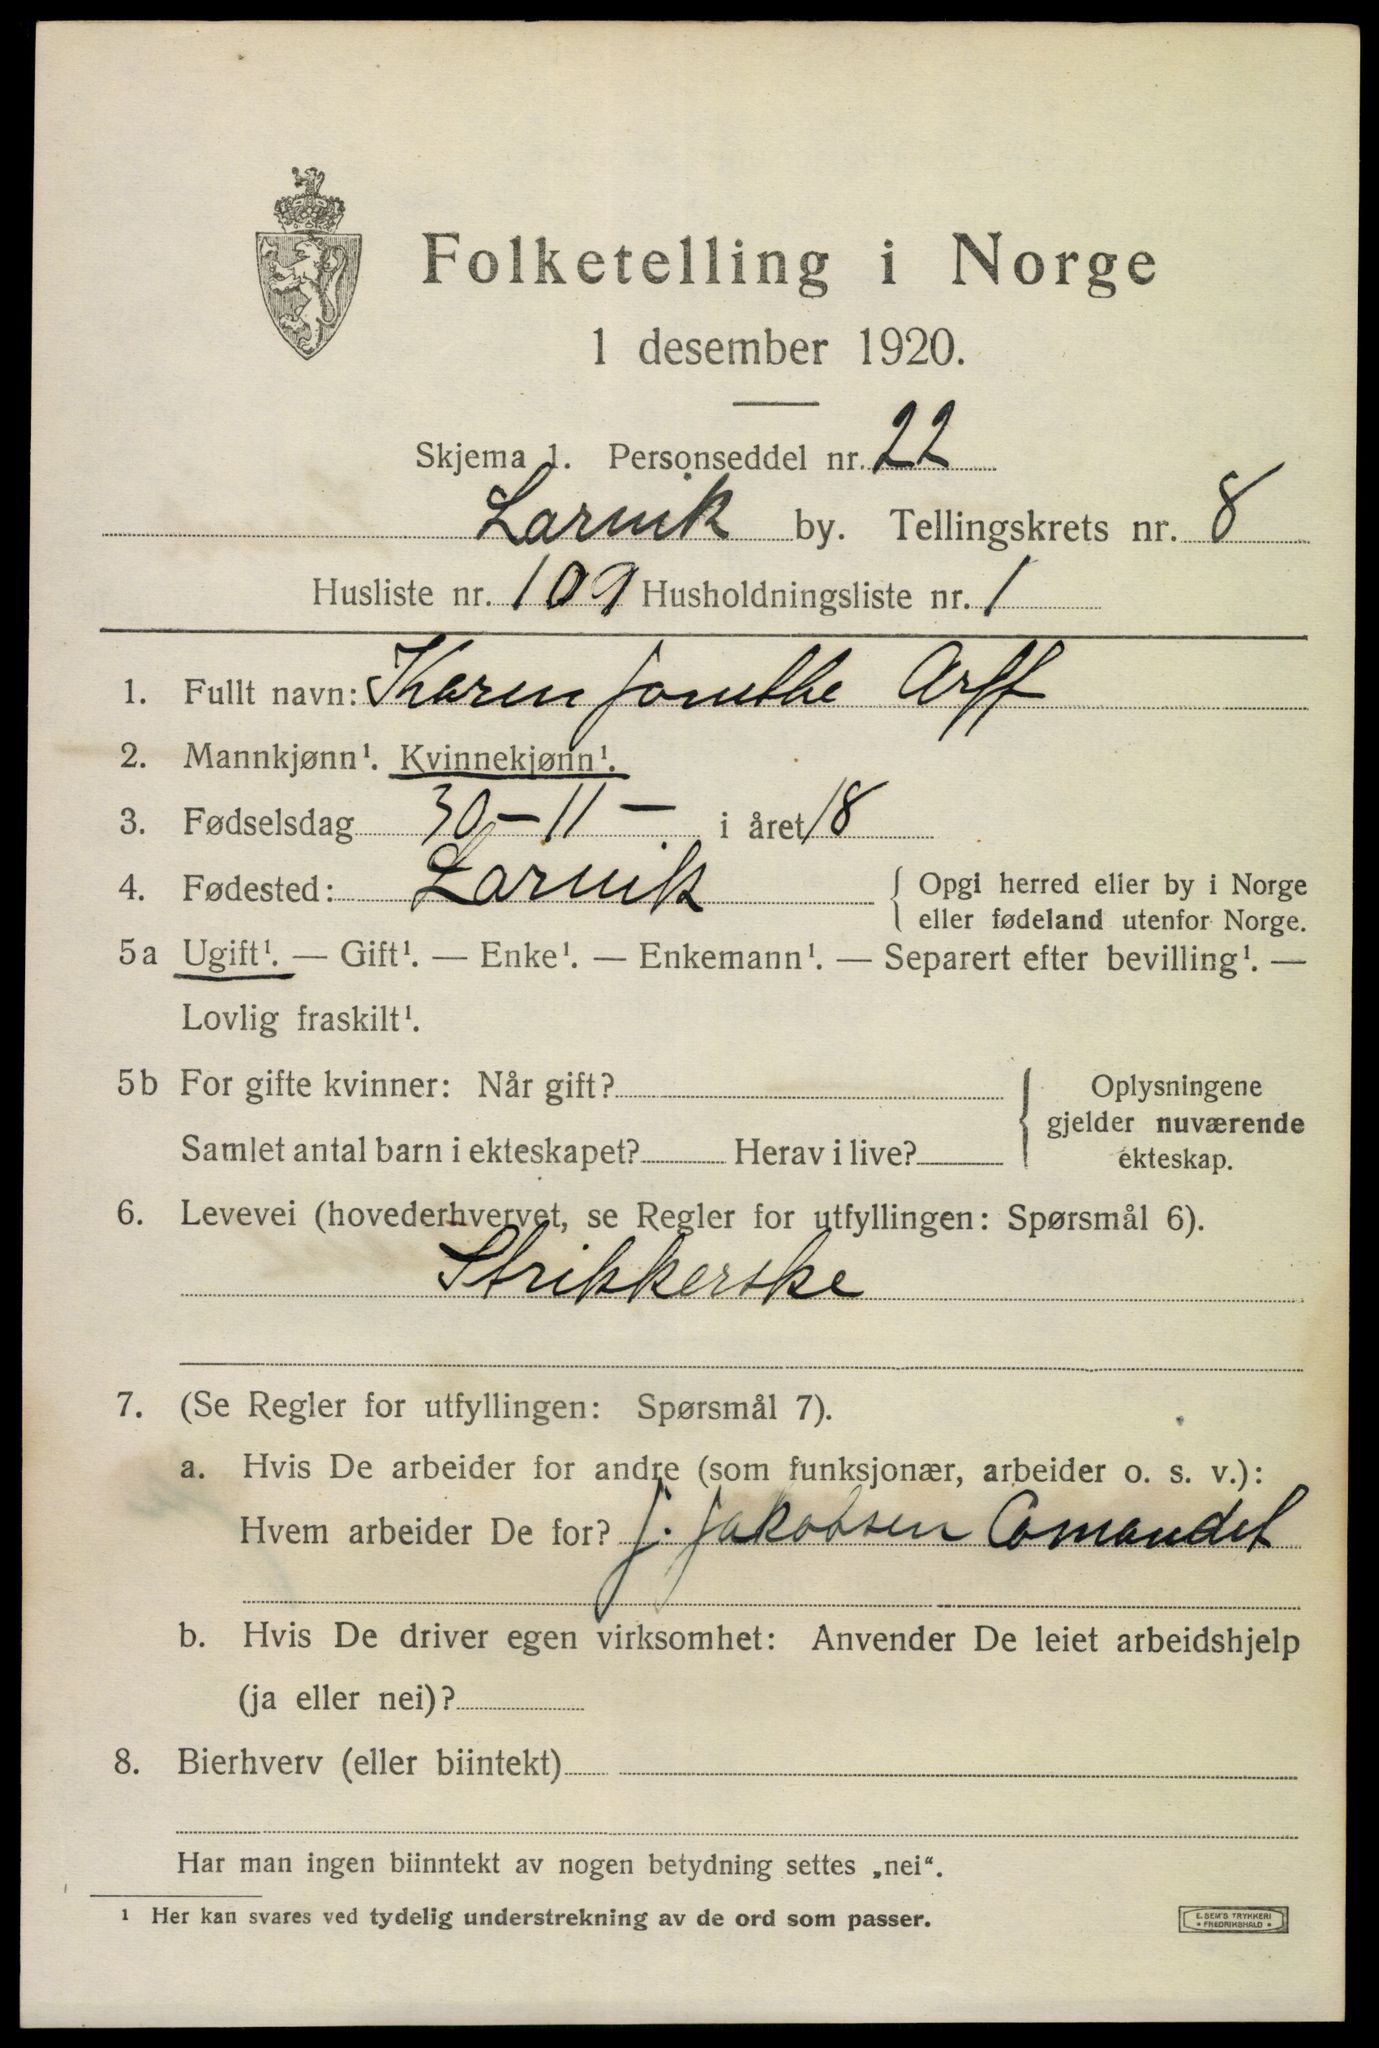 Folketelling i Norge
1 desember 1920.
Skjema 1. Personseddel nr. 22
Larvik by. Tellingskrets nr. 8
Husliste nr. 109 Husholdningsliste nr. 1
1. Fullt navn: Karen Arff
2. Mannkjønn¹. Kvinnekjønn¹.
3. Fødselsdag 30-11- i året 18
4. Fødested: Larvik { Opgi herred eller by i Norge
eller fødeland utenfor Norge.
5a Ugift¹. — Gift¹. — Enke¹. — Enkemann¹. — Separert efter bevilling¹. —
Lovlig fraskilt¹.
5b For gifte kvinner: Når gift? { Oplysningene
gjelder nuværende
Samlet antal barn i ekteskapet? Herav i live? ekteskap.
6. Levevei (hovederhvervet, se Regler for utfyllingen: Spørsmål 6).
Strikkerske
7. (Se Regler for utfyllingen: Spørsmål 7).
a. Hvis De arbeider for andre (som funksjonær, arbeider o. s. v.):
Hvem arbeider De for? J. Jakobsen Comandet
b. Hvis De driver egen virksomhet: Anvender De leiet arbeidshjelp
(ja eller nei)?
8. Bierhverv (eller biintekt)
Har man ingen biinntekt av nogen betydning settes „nei“.
¹ Her kan svares ved tydelig understrekning av de ord som passer.
E. SEM'S TRYKKERI
* FREDRIKSHALD *